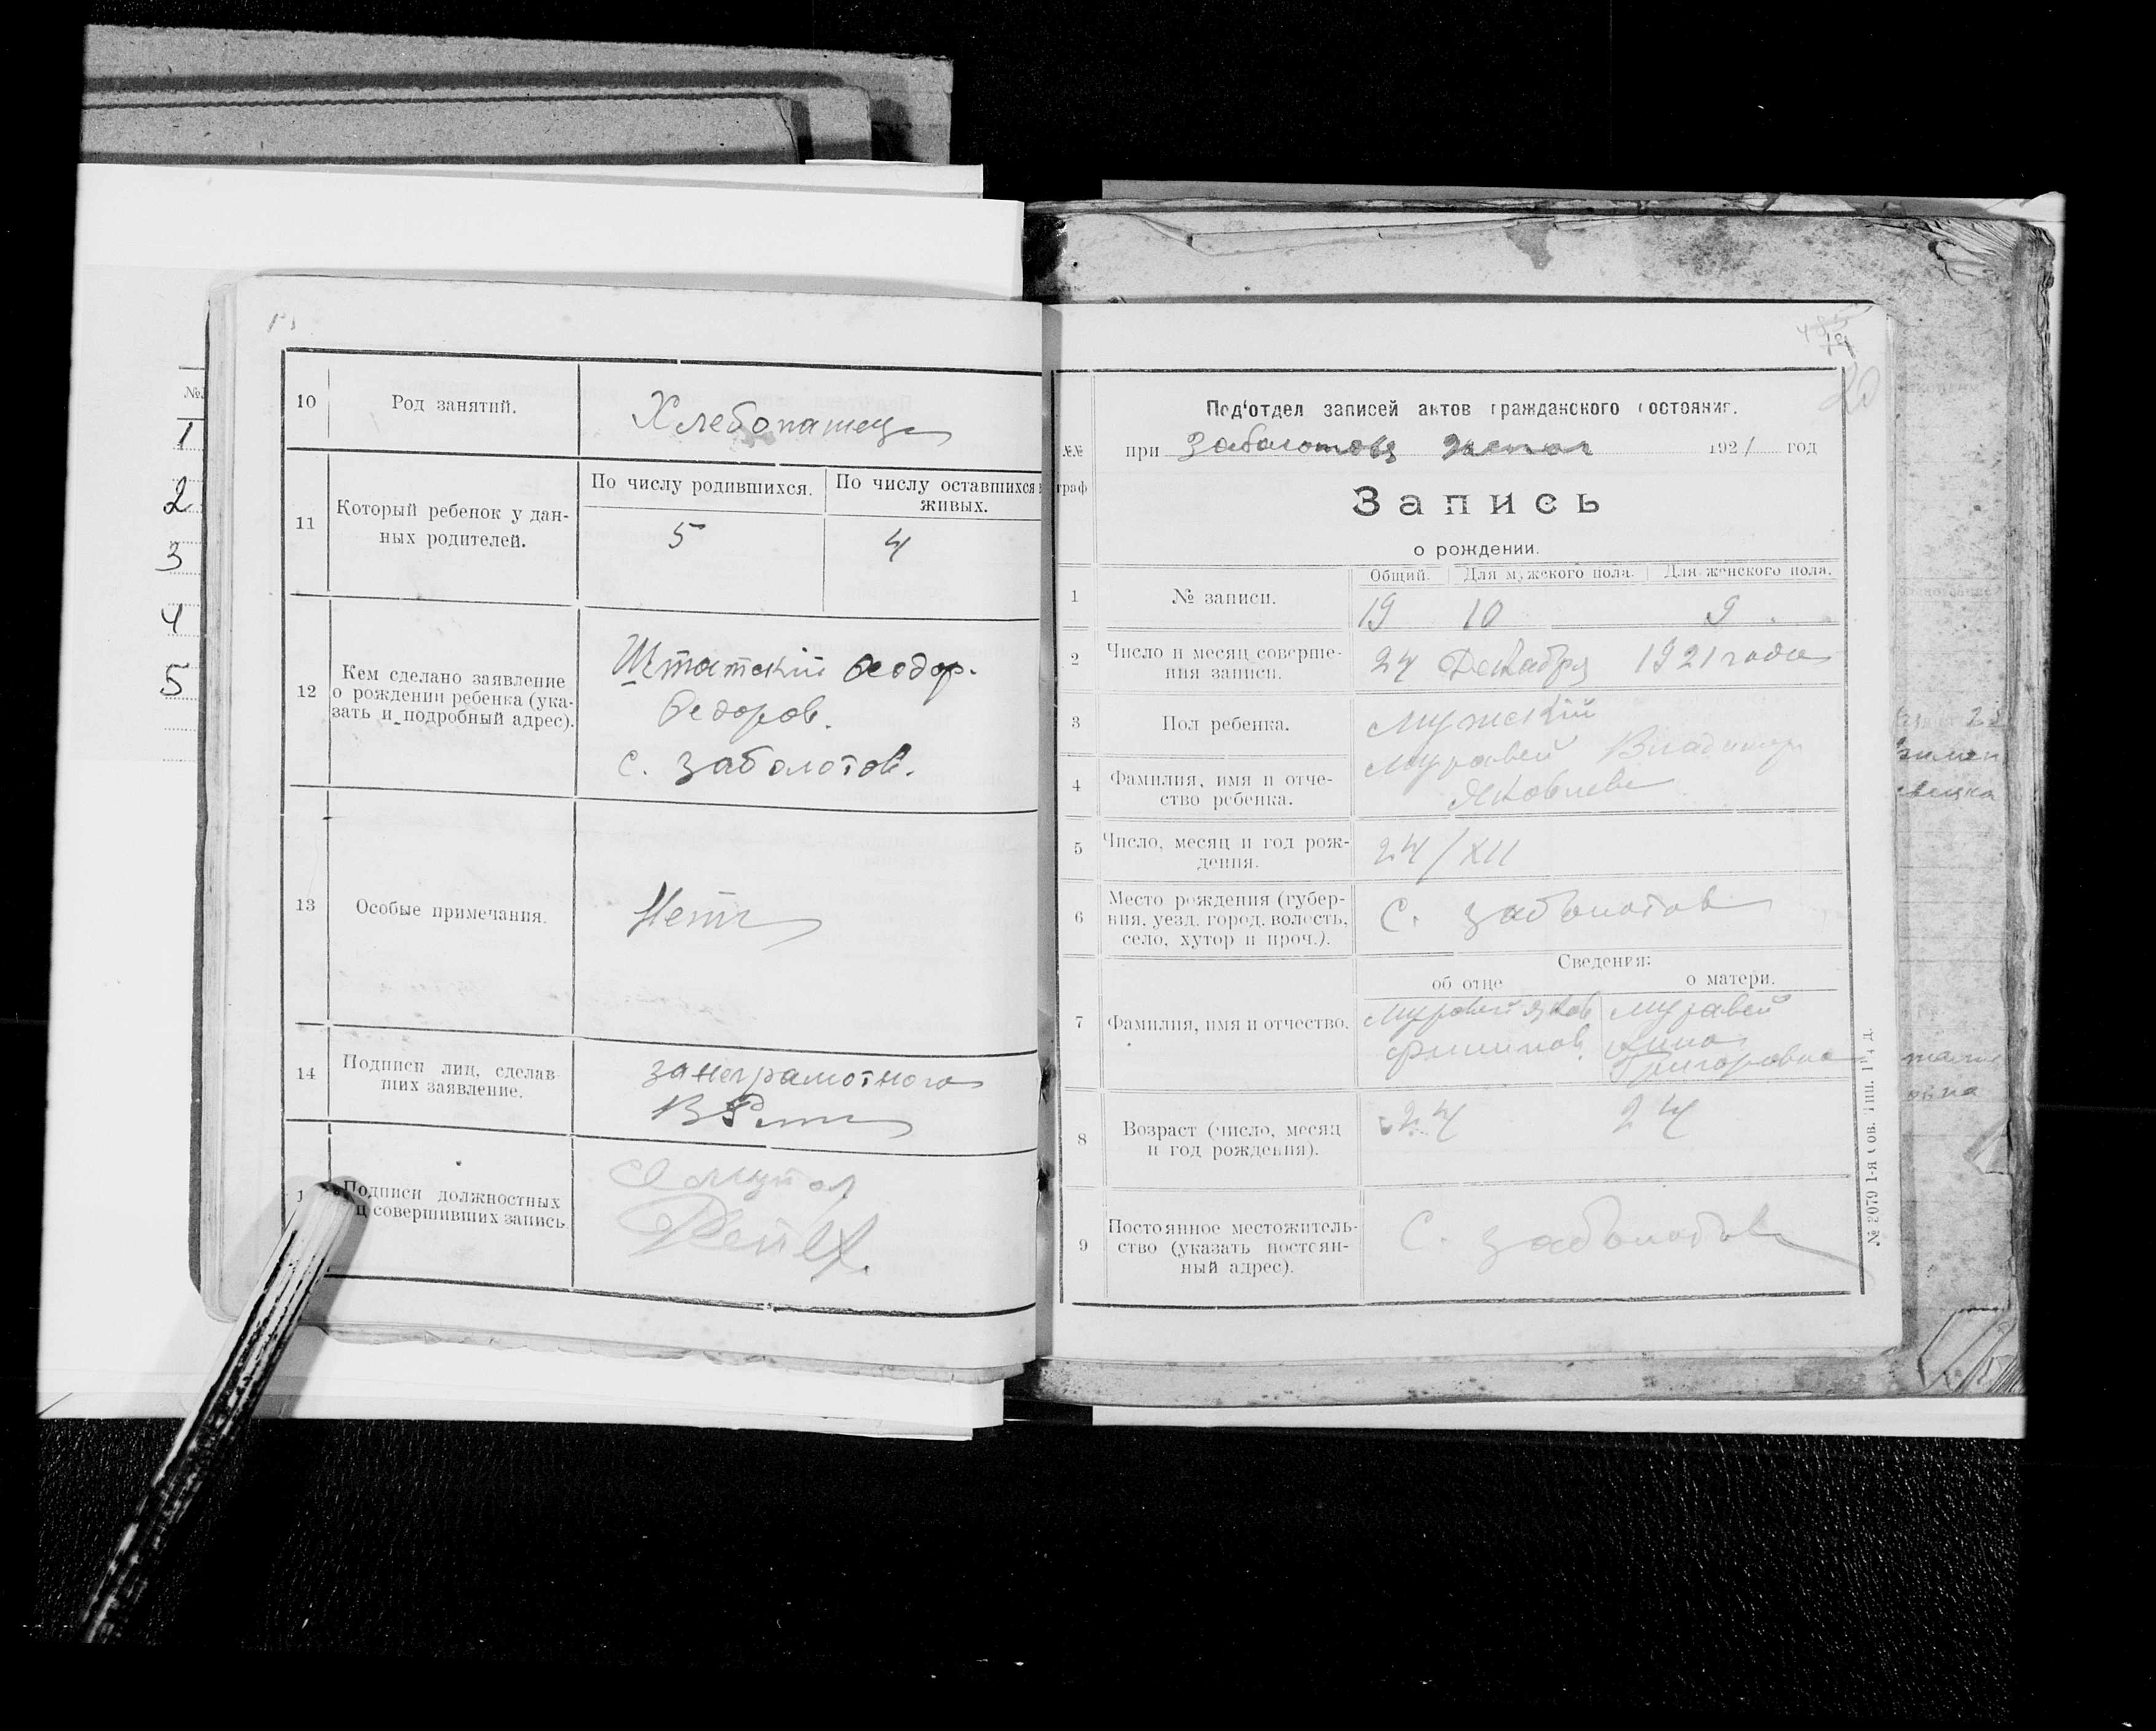 №
1
2
3
4
5
10
Род занятий.
Хлебопашец
11
Который ребенок у дан-
ных родителей.
По числу родившихся.
По числу оставшихся в
живых.
5
4
12
Кем сделано заявление
о рождении ребенка (ука-
зать и подробный адрес).
Штатский Феодор.
Федоров.
с. Заболотов.
13
Особые примечания.
Нет
14
Подписи лиц, сделав-
ших заявление.
за неграмотного
Подписи должностных
ц совершивших запись.
№№
граф
Под'отдел записей актов гражданского состояния.
при Заболотов 1921 год
Запись
о рождении.
1
№ записи.
Общий. Для мужского пола. Для женского пола.
19 10 9
2
Число и месяц соверше-
ния записи.
24 Декабря 1921 года
3
Пол ребенка.
Мужский
4
Фамилия, имя и отче-
ство ребенка.
Муравей Владимир
Яковлев
5
Число, месяц и год рож-
дения.
24/XII
6
Место рождения (губер-
ния, уезд, город, волость,
село, хутор и проч.).
С. Заболотов
Сведения:
об отце
о матери.
7
Фамилия, имя и отчество.
Муравей Яков
Филипов
Муравей
Анна
Григоровна
8
Возраст (число, месяц
и год рождения).
24
24
9
Постоянное местожитель-
ство (указать постоян-
ный адрес).
С. Заболотов
№ 2079 1-я Сов. тип.